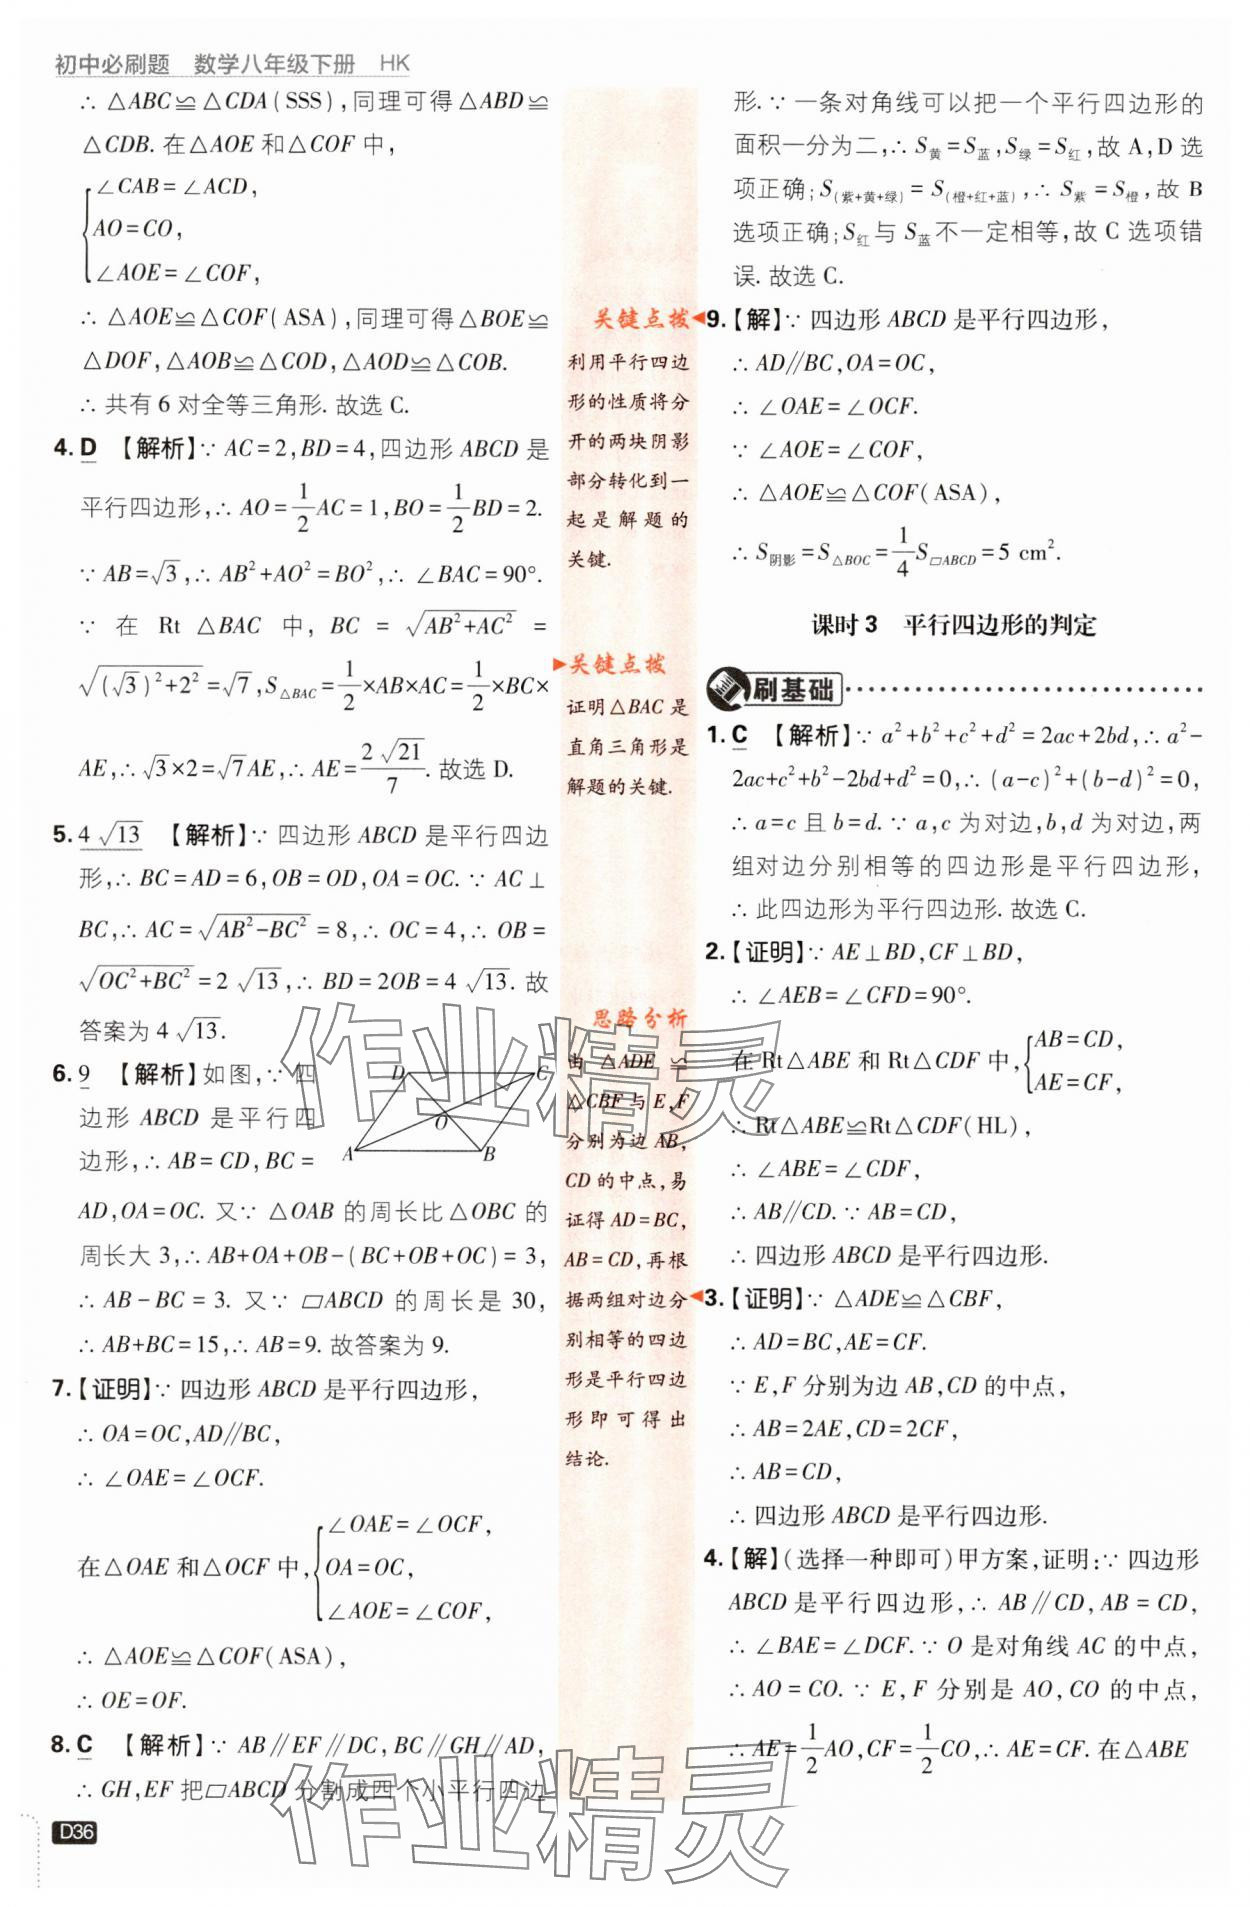 初中必刷题 数学八年级下册 HK
∴ △ABC≌△CDA(SSS),同理可得△ABD≌
△CDB. 在△AOE 和△COF 中,
∠CAB=∠ACD,
AO=CO,
∠AOE=∠COF,
∴ △AOE≌△COF(ASA),同理可得△BOE≌
△DOF,△AOB≌△COD,△AOD≌△COB.
∴ 共有 6 对全等三角形. 故选 C.
4. D 【解析】∵ AC=2,BD=4,四边形 ABCD 是
平行四边形,∴ AO=1/2AC=1,BO=1/2BD=2.
∵ AB=√3,∴ AB²+AO²=BO²,∴ ∠BAC=90°.
∵ 在 Rt △BAC 中, BC = √(AB²+AC²) =
√((√3)²+2²)=√7,S△BAC=1/2×AB×AC=1/2×BC×
AE,∴ √3×2=√7AE,∴ AE=2√21/7. 故选 D.
5. 4√13 【解析】∵ 四边形 ABCD 是平行四边
形,∴ BC=AD=6,OB=OD,OA=OC. ∵ AC⊥
BC,∴ AC=√(AB²-BC²)=8,∴ OC=4,∴ OB=
√(OC²+BC²)=2√13,∴ BD=2OB=4√13. 故
答案为 4√13.
6. 9 【解析】如图,∵ 四
边形 ABCD 是平行四
边形,∴ AB=CD,BC=
D
C
O
A
B
AD,OA=OC. 又∵ △OAB 的周长比△OBC 的
周长大 3,∴ AB+OA+OB-(BC+OB+OC)=3,
∴ AB-BC=3. 又∵ ▱ABCD 的周长是 30,
∴ AB+BC=15,∴ AB=9. 故答案为 9.
7.【证明】∵ 四边形 ABCD 是平行四边形,
∴ OA=OC,AD∥BC,
∴ ∠OAE=∠OCF.
在△OAE 和△OCF 中,
∠OAE=∠OCF,
OA=OC,
∠AOE=∠COF,
∴ △AOE≌△COF(ASA),
∴ OE=OF.
8. C 【解析】∵ AB∥EF∥DC,BC∥GH∥AD,
∴ GH,EF 把▱ABCD 分割成四个小平行四边
D36
关键点拨
利用平行四边
形的性质将分
开的两块阴影
部分转化到一
起是解题的
关键.
关键点拨
证明△BAC 是
直角三角形是
解题的关键.
思路分析
由 △ADE ≌
△CBF 与 E,F
分别为边 AB,
CD 的中点,易
证得 AD=BC,
AB=CD,再根
据两组对边分
别相等的四边
形是平行四边
形即可得出
结论.
形. ∵ 一条对角线可以把一个平行四边形的
面积一分为二,∴ S黄=S蓝,S绿=S红,故 A,D 选
项正确;S(紫+黄+绿)=S(橙+红+蓝),∴ S紫=S橙,故 B
选项正确;S红与 S蓝不一定相等,故 C 选项错
误. 故选 C.
9.【解】∵ 四边形 ABCD 是平行四边形,
∴ AD∥BC,OA=OC,
∴ ∠OAE=∠OCF.
∵ ∠AOE=∠COF,
∴ △AOE≌△COF(ASA),
∴ S阴影=S△BOC=1/4S▱ABCD=5 cm².
课时 3 平行四边形的判定
刷基础
1. C 【解析】∵ a²+b²+c²+d²=2ac+2bd,∴ a²-
2ac+c²+b²-2bd+d²=0,∴ (a-c)²+(b-d)²=0,
∴ a=c 且 b=d. ∵ a,c 为对边,b,d 为对边,两
组对边分别相等的四边形是平行四边形,
∴ 此四边形为平行四边形. 故选 C.
2.【证明】∵ AE⊥BD,CF⊥BD,
∴ ∠AEB=∠CFD=90°.
在 Rt△ABE 和 Rt△CDF 中,
AB=CD,
AE=CF,
∴ Rt△ABE≌Rt△CDF(HL),
∴ ∠ABE=∠CDF,
∴ AB∥CD. ∵ AB=CD,
∴ 四边形 ABCD 是平行四边形.
3.【证明】∵ △ADE≌△CBF,
∴ AD=BC,AE=CF.
∵ E,F 分别为边 AB,CD 的中点,
∴ AB=2AE,CD=2CF,
∴ AB=CD,
∴ 四边形 ABCD 是平行四边形.
4.【解】(选择一种即可)甲方案,证明:∵ 四边形
ABCD 是平行四边形,∴ AB∥CD,AB=CD,
∴ ∠BAE=∠DCF. ∵ O 是对角线 AC 的中点,
∴ AO=CO. ∵ E,F 分别是 AO,CO 的中点,
∴ AE=1/2AO,CF=1/2CO,∴ AE=CF. 在△ABE
作业精灵
作业精灵